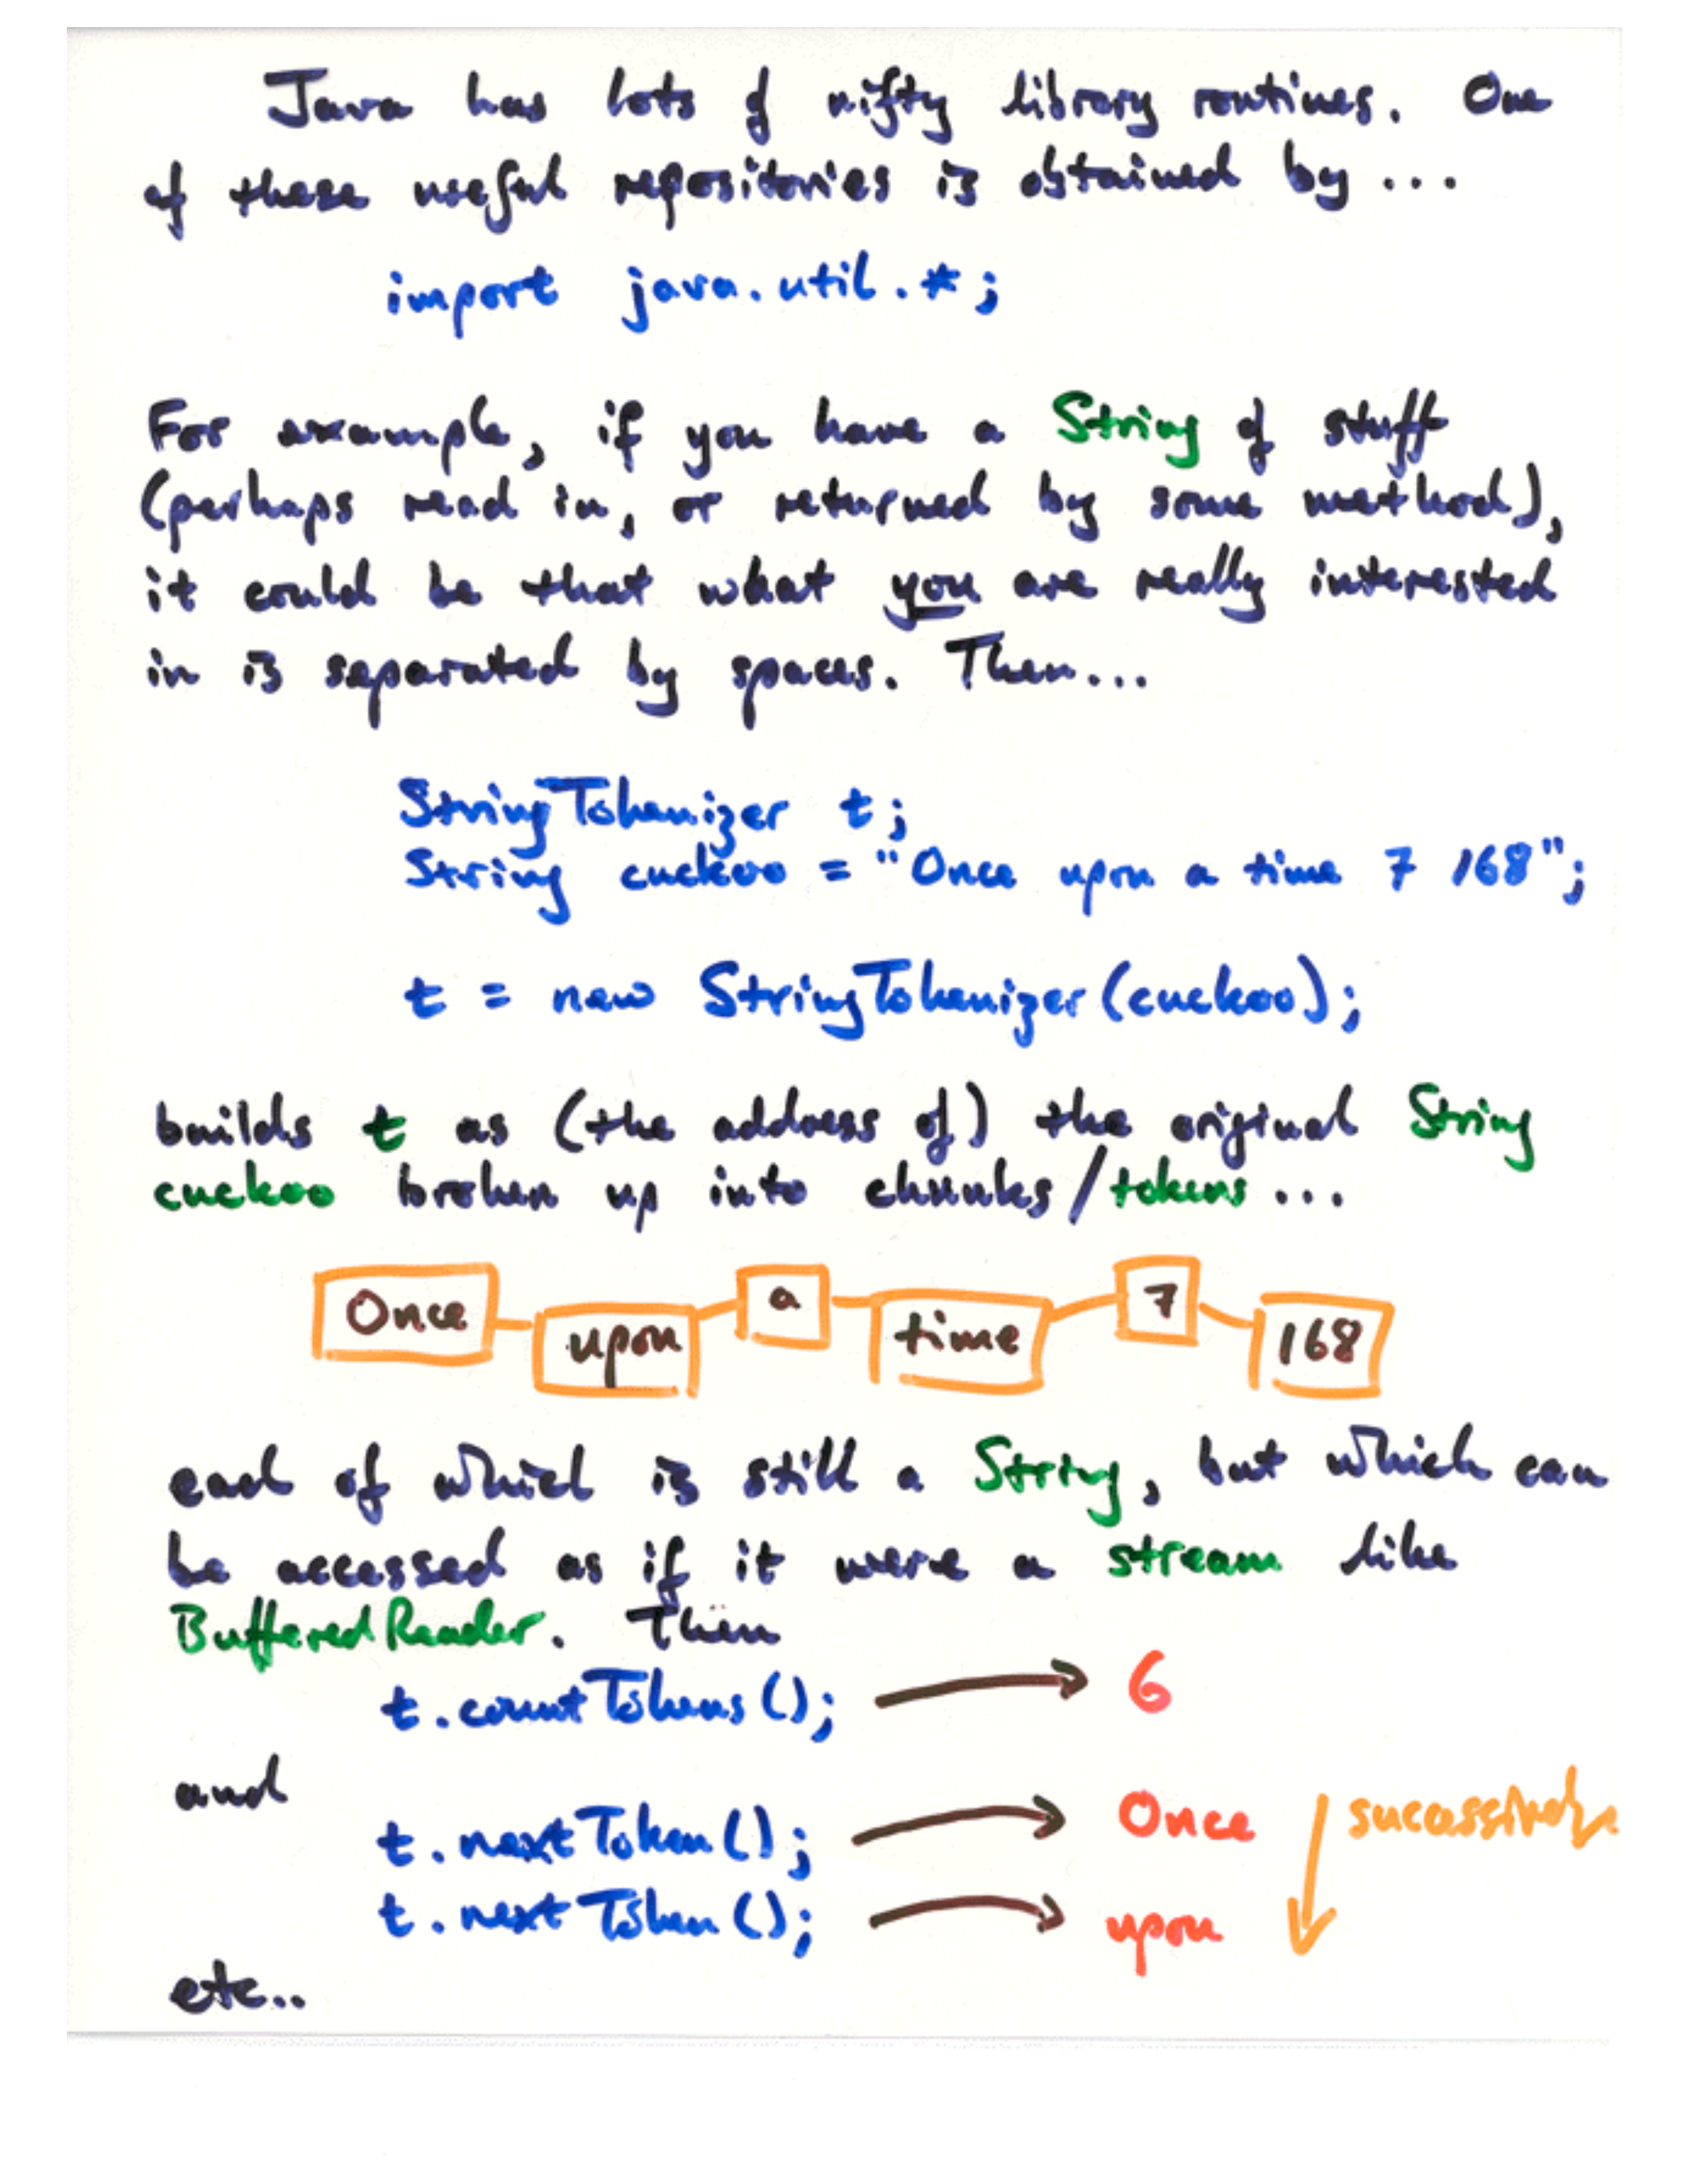 Java has lots of nifty library routines. One
of these useful repositories is obtained by ...
import java.util.*;
For example, if you have a String of stuff
(perhaps read in, or returned by some method),
it could be that what you are really interested
in is separated by spaces. Then...
StringTokenizer t;
String cuckoo = "Once upon a time 7 168";
t = new StringTokenizer(cuckoo);
builds t as (the address of) the original String
cuckoo broken up into chunks/tokens ...
Once upon a time 7 168
each of which is still a String, but which can
be accessed as if it were a stream like
BufferedReader. Then
t.countTokens(); → 6
and
t.nextToken(); → Once ↓ successively
t.nextToken(); → upon
etc..